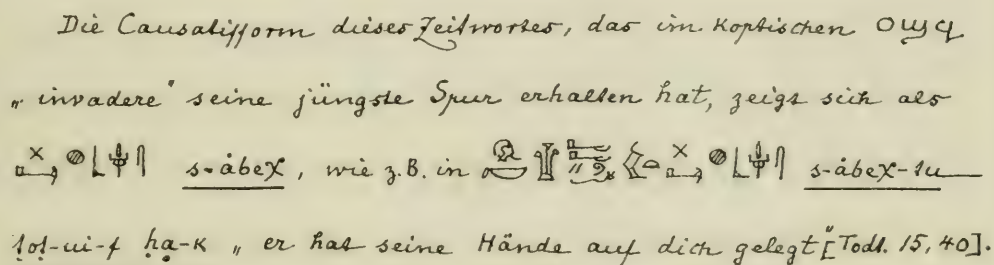 Die Causatifform dieses Zeitwortes, das im Koptischen ⲟⲩϣϥ
„invadere" seine jüngste Spur erhalten hat, zeigt sich als
s-ȧbeχ, wie z.B. in s-ȧbeχ-tu
ṭoṭ-ui-f ḥạ-k „er hat seine Hände auf dich gelegt" [Todt. 15, 40].